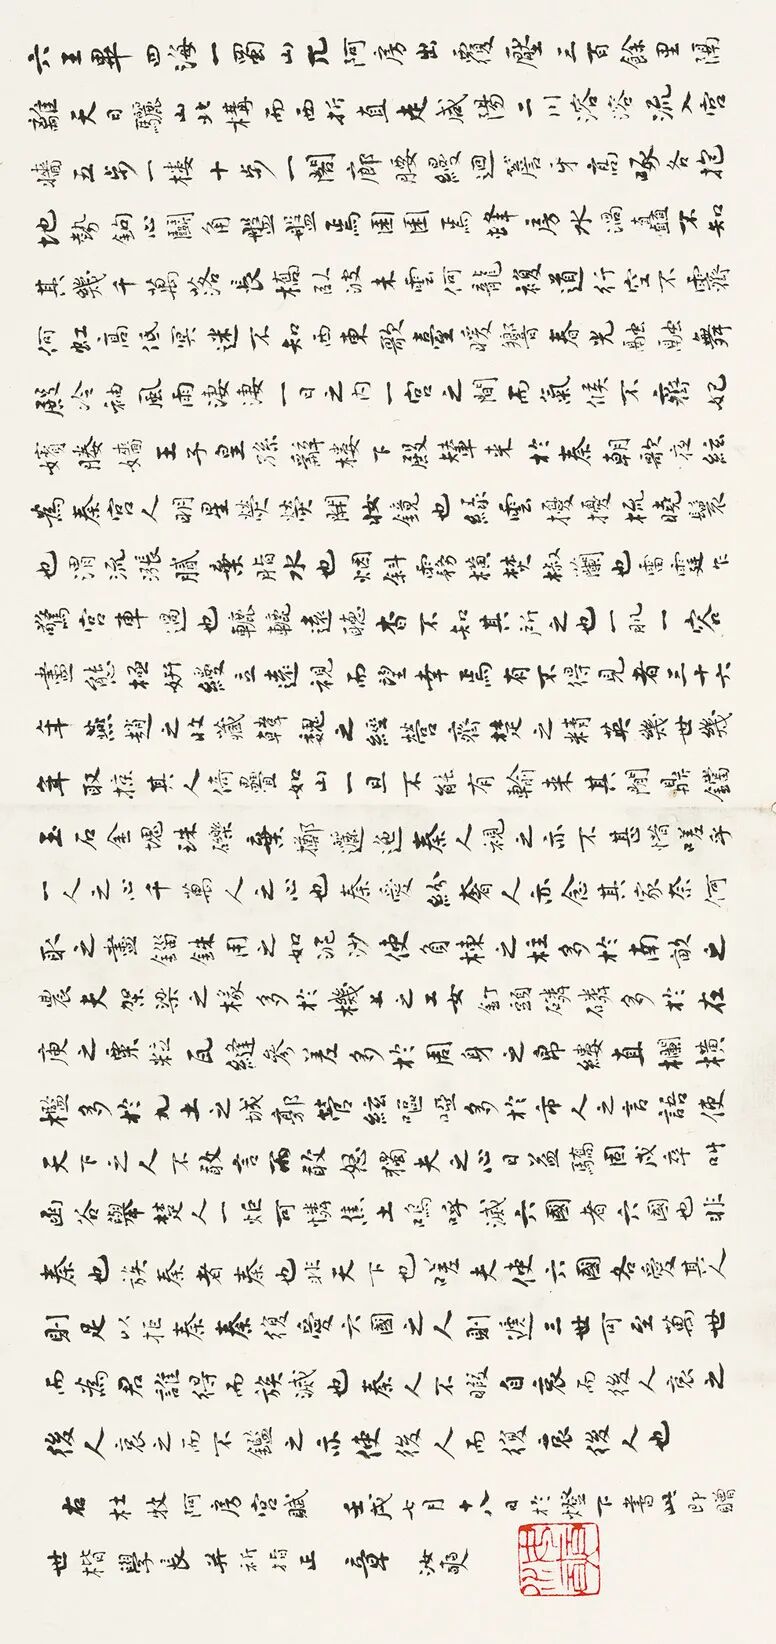 六王畢四海一蜀山兀阿房出覆壓三百餘里隔
離天日驪山北構而西折直走咸陽二川溶溶流入宮
牆五步一樓十步一閣廊腰縵迴簷牙高啄各抱
地勢鉤心鬬角盤盤焉囷囷焉蜂房水渦矗不知
其幾千萬落長橋臥波未雲何龍複道行空不霽
何虹高低冥迷不知西東歌臺暖響春光融融舞
殿冷袖風雨淒淒一日之內一宮之間而氣候不齊妃
嬪媵嬙王子皇孫辭樓下殿輦來於秦朝歌夜絃
為秦宮人明星熒熒開妝鏡也綠雲擾擾梳曉鬟
也渭流漲膩棄脂水也烟斜霧橫焚椒蘭也雷霆乍
驚宮車過也轆轆遠聽杳不知其所之也一肌一容
盡態極妍縵立遠視而望幸焉有不得見者三十六
年燕趙之收藏韓魏之經營齊楚之精英幾世幾
年取掠其人倚疊如山一旦不能有輸來其間鼎鐺
玉石金塊珠礫棄擲邐迤秦人視之亦不甚惜嗟乎
一人之心千萬人之心也秦愛紛奢人亦念其家奈何
取之盡錙銖用之如泥沙使負棟之柱多於南畝之
農夫架梁之椽多於機上之工女釘頭磷磷多於在
庾之粟粒瓦縫參差多於周身之帛縷直欄橫
檻多於九土之城郭管絃嘔啞多於市人之言語使
天下之人不敢言而敢怒獨夫之心日益驕固戍卒叫
函谷舉楚人一炬可憐焦土嗚呼滅六國者六國也非
秦也族秦者秦也非天下也嗟夫使六國各愛其人
則足以拒秦秦復愛六國之人則遞三世可至萬世
而為君誰得而族滅也秦人不暇自哀而後人哀之
後人哀之而不鑑之亦使後人而復哀後人也
右杜牧阿房宮賦 壬戌七月十八日於燈下書此即贈
世楷學長并祈指正 章汝奭